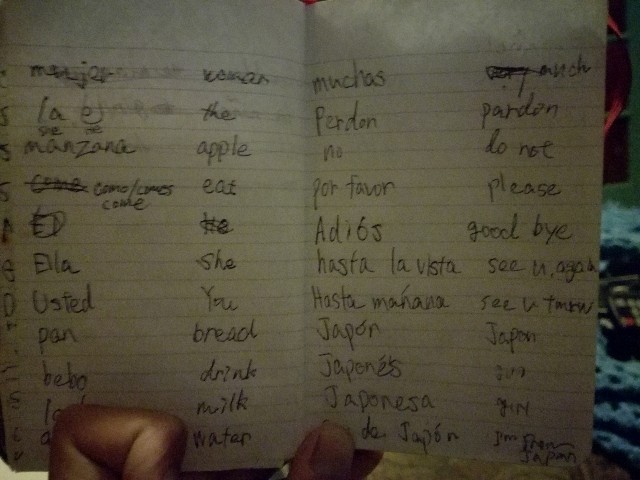 mujer woman
la el the
manzana apple
como/comes eat
come
Ella she
Usted You
pan bread
bebo drink
milk
water
muchas much
Perdon pardon
no do not
por favor please
Adiós good bye
hasta la vista see u, again
Hasta mañana see u tmrw
Japón Japon
Japonés
Japonesa
de Japón I'm from
Japan